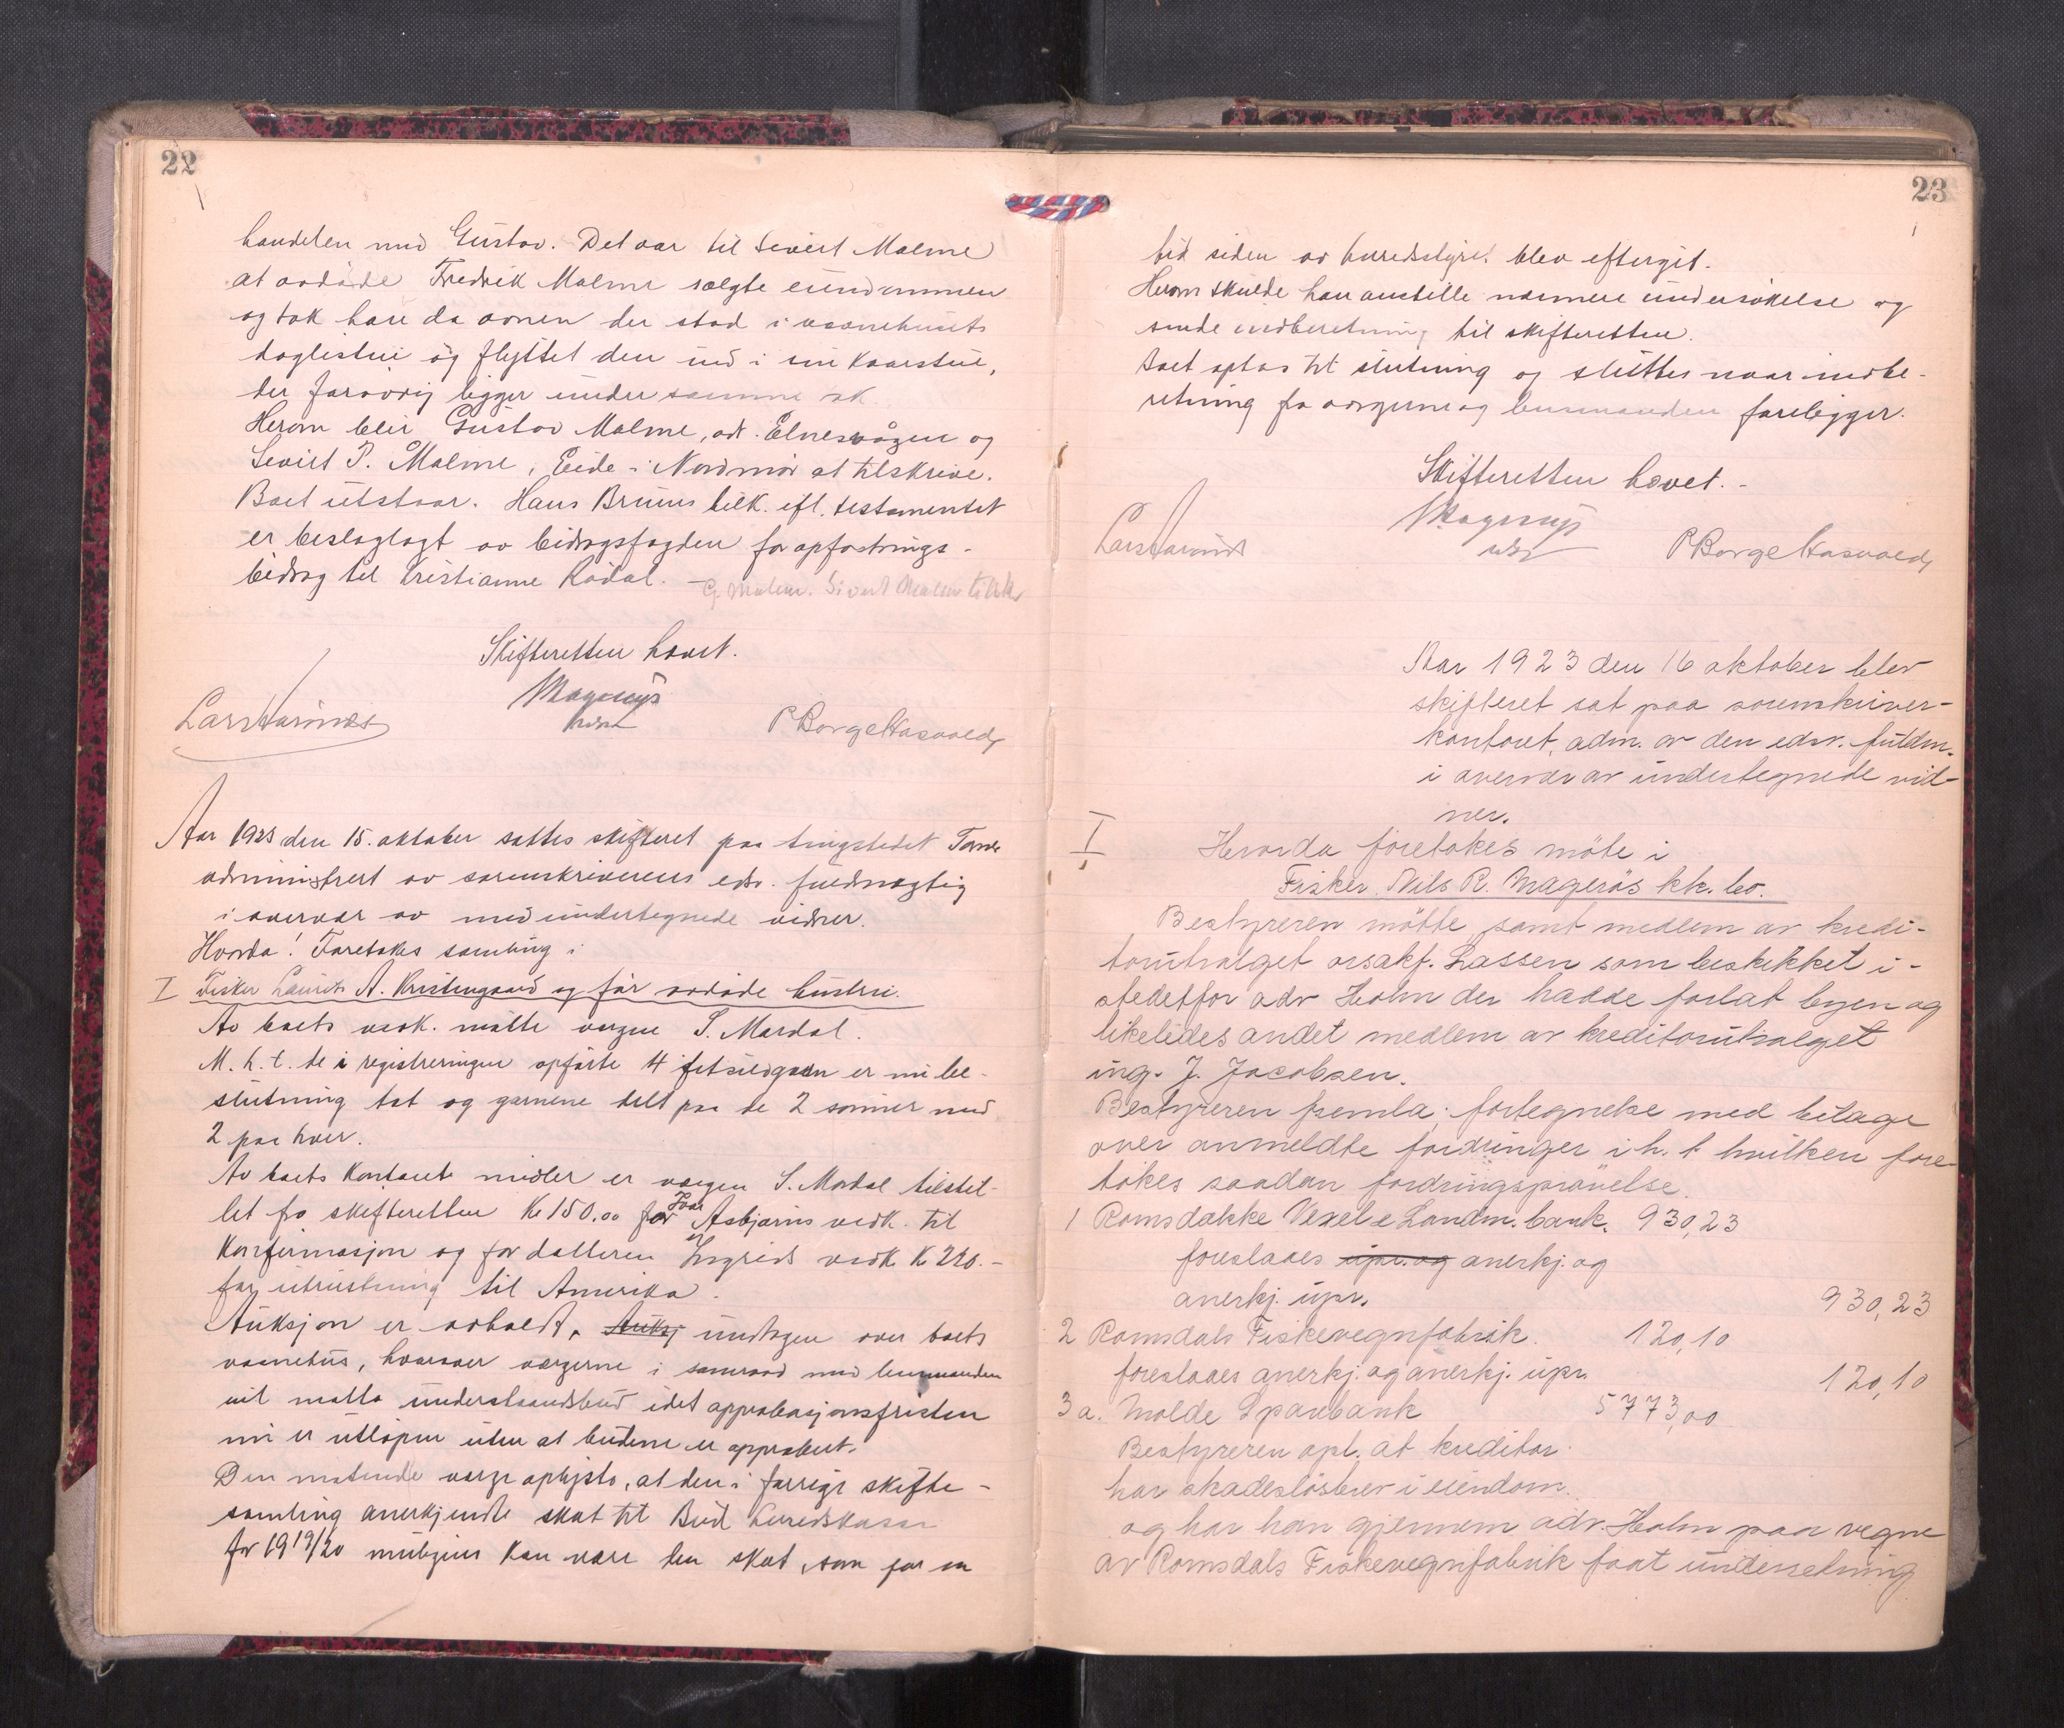 22
handelen med Gustav. Det var til Sivert Malme
at avdöde Fredrik Malme sælgte eiendommen
og tok bare da ovnen der stod i vaanehusets
daglistue og flyttet den ind i sin kaarstue,
der forövrig ligger under samme tak.
Herom blir Gustav Malme, adr. Elnesvågen og
Sevirt P. Malme, Eide i Nordmör at tilskrive.
Boet utstaar. Hans Bruuns tilk. eft. testamentet
er beslaglagt av bidragsfogden for opfostrings-
bidrag til Kristianne Rödal. – G. Malme. Sivert Malme tilskr
Skifteretten hævet.
Magerøy
Lars Harnes
P Borge Hasvold
Aar 1923 den 15. oktober sattes skifteret paa tingstedet Tornes
administrert av sorenskriverens edsv. fuldmægtig
i overvær av medundertegnede vidner.
Hvorda! Foretokes samling i
I Fisker Laurits A. Kristengaard og før avdöde hustru.
Av boets vedk. mötte vergen S. Mordal.
M. h. t. de i registreringen opförte 4 fetsildgarn er nu be-
slutning tat og garnene delt paa de 2 sönner med
2 paa hver.
Av boets kontante midler er vergen S. Mordal tilstil-
let fra skifteretten Kr 150.00 for Ivar Asbjörns vedk. til
Konfirmasjon og for datteren Ingrids vedk. Kr 220.-
for utrustning til Amerika.
Auksjon er avholdt, Auksj undtagen over boets
vaanehus, hvorover vergerne i samraad med lensmanden
vil motta underhaandsbud idet approbasjonsfristen
nu er utlöpen uten at budene er approbert.
Den mötende verge oplyste, at den i forrige skifte-
samling anerkjendte skat til Bud herredskasse
for 1919/20 muligens kan være den skat, som for en
23
tid siden av herredsstyret blev eftergit.
Herom skulde han anstille nærmere undersökelse og
sende indberetning til skifteretten.
Boet optas til slutning og sluttes naar indbe-
retning fra vergerne og lensmanden foreligger.
Skifteretten hævet. -
Magerøy
Lars Harnes
P Borge Hasvold
Aar 1923 den 16 oktober blev
skifteret sat paa sorenskriver-
kontoret, adm. av den edsv. fuldm.
i overvær av undertegnede vid-
ner.
I
Hvorda foretokes möte i
Fisker Nils R. Magerös kk. bo.
Bestyreren mötte samt medlem av kredi-
torutvalget orsakf. Lassen som beskikket i-
stedetfor adv Holm der hadde forlat byen og
likeledes andet medlem av kreditorutvalget
ing. J. Jacobsen.
Bestyreren fremla: fortegnelse med bilage
over anmeldte fordringer i h. t hvilken fore-
tokes saadan fordringsprövelse.
1 Romsdalske Vexel & Landm. bank. 930,23
foreslaaes upr. og anerkj. og
anerkj. upr. 930,23
2 Romsdals Fiskevegnfabrik. 120,10
foreslaaes anerkj. og anerkj. upr. 120,10
3a. Molde Sparebank 5773,00
Bestyreren opl. at kreditor
har skadeslösbrev i eiendom.
og har han gjennem adv. Holm paa vegne
av Romsdals Fiskevegnfabrik faat underretning